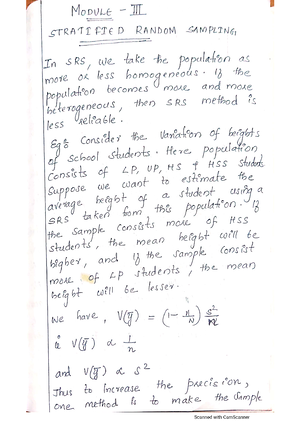 MODULE - III
STRATIFIED RANDOM SAMPLING
In SRS, we take the population as
more or less homogeneous. If the
population becomes more and more
heterogeneous, then SRS method is
less reliable.
Eg: Consider the variation of heights
of School Students. Here population
consists of LP, UP, HS & HSS Students
Suppose we want to estimate the
average height of a student using a
SRS taken from this population. If
the sample consists more of HSS
students, the mean height will be
higher, and if the sample consist
more of LP students, the mean
height will be lesser.
We have, V(ȳ) = (1 - n/N) s²/n
ie V(ȳ) ∝ 1/n
and V(ȳ) ∝ S²
Thus to increase the precision,
one method is to make the sample
Scanned with CamScanner